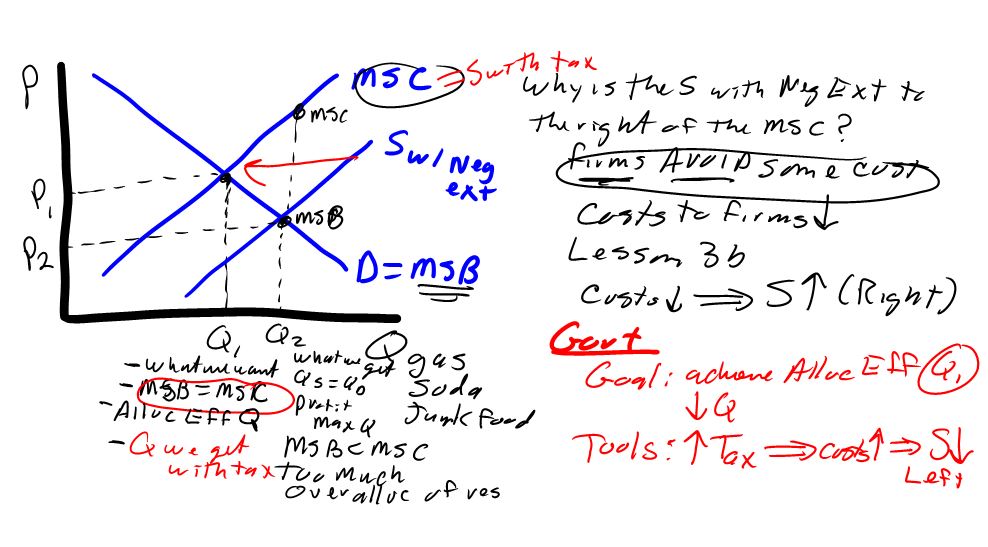 P
MSC = S with tax
MSC
S w/ Neg
ext
MSB
P1
P2
D = MSB
Q1
Q2
Q gas
Soda
Junk Food
- what we want
- MSB = MSC
- Alloc Eff Q
- Q we get
with tax
what we get
Qs = QD
profit
max Q
MSB < MSC
Too much
Overalloc of res
Why is the S with Neg Ext to
the right of the MSC?
firms AVOID some cost
Costs to firms ↓
Lesson 3b
Costs ↓ ⟹ S ↑ (Right)
Govt
Goal: achieve Alloc Eff Q1
↓ Q
Tools: ↑ Tax ⟹ costs ↑ ⟹ S ↓
Left